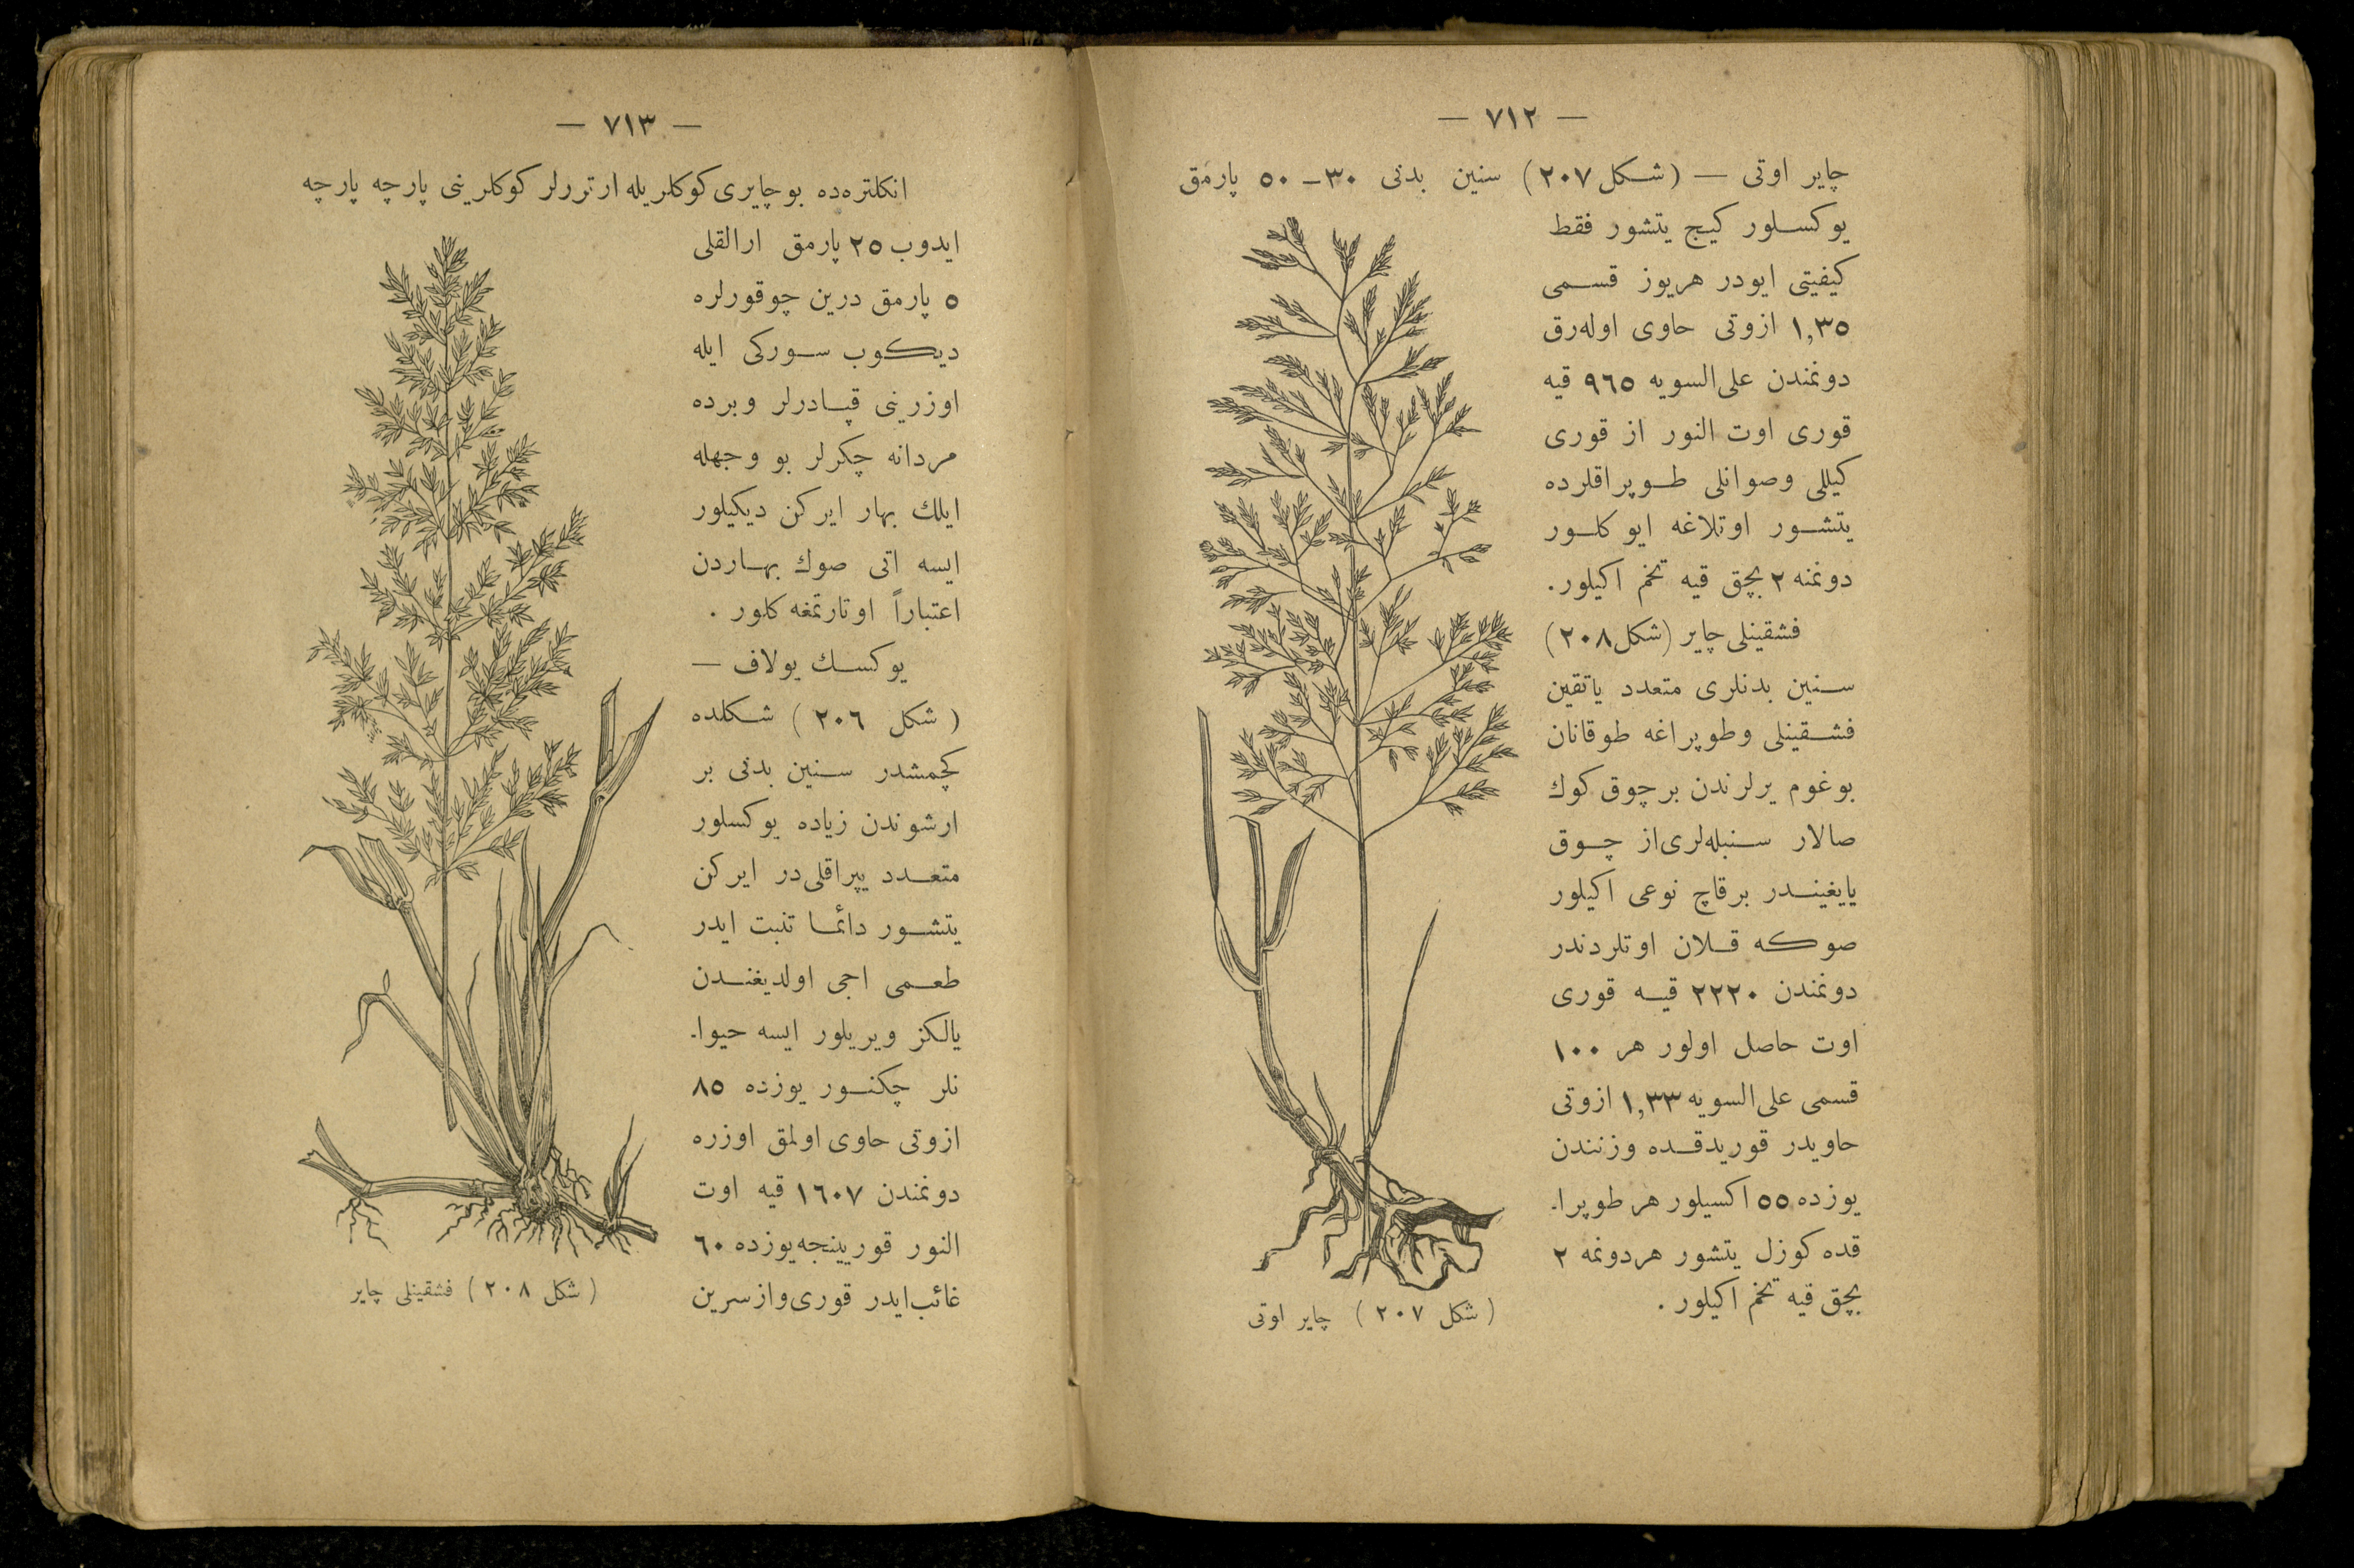 — ٧١٢ —
چایر اوتی — (شكل ٢٠٧) سنین بدنی ٣٠ – ٥٠ پارمق
یوكسلور كیچ یتشور فقط
كیفیتی ایودر هریوز قسمی
١,٣٥ ازوتی حاوی اوله‌رق
دونمندن علی‌السویه ٩٦٥ قیه
قوری اوت النور از قوری
كیللی وصوانلی طوپراقلرده
یتشور اوتلاغه ایو كلور
دونمنه ٢ بچق قیه تخم اكیلور.
فشقینلی چایر (شكل ٢٠٨)
سنین بدنلری متعدد یاتقین
فشقینلی وطوپراغه طوقانان
بوغوم یرلرندن برچوق كوك
صالار سنبله‌لری از چوق
یایغیندر برقاچ نوعی اكیلور
صوكه قلان اوتلردندر
دونمندن ٢٢٢٠ قیه قوری
اوت حاصل اولور هر ١٠٠
قسمی علی‌السویه ١,٣٣ ازوتی
حاویدر قوریدقده وزنندن
یوزده ٥٥ اكسیلور هر طوپرا.
قده كوزل یتشور هردونمه ٢
بچق قیه تخم اكیلور .
(شكل ٢٠٧) چایر اوتی
— ٧١٣ —
انكلتره‌ده بوچایری كوكلریله ارتررلر كوكلرینی پارچه پارچه
ایدوب ٢٥ پارمق ارالقلی
٥ پارمق درین چوقورلره
دیكوب سوركی ایله
اوزرینی قپادرلر وبرده
مردانه چكرلر بو وجهله
ایلك بهار ایركن دیكیلور
ایسه اتی صوك بهاردن
اعتباراً اوتارتمغه كلور .
یوكسك یولاف —
(شكل ٢٠٦) شكلده
كچمشدر سنین بدنی بر
ارشوندن زیاده یوكسلور
متعدد یپراقلی‌در ایركن
یتشور دائما تنبت ایدر
طعمی اجی اولدیغندن
یالكز ویریلور ایسه حیوا.
نلر چكنور یوزده ٨٥
ازوتی حاوی اولمق اوزره
دونمندن ١٦٠٧ قیه اوت
النور قورینجه یوزده ٦٠
غائب ایدر قوری واز سرین
(شكل ٢٠٨) فشقینلی چایر